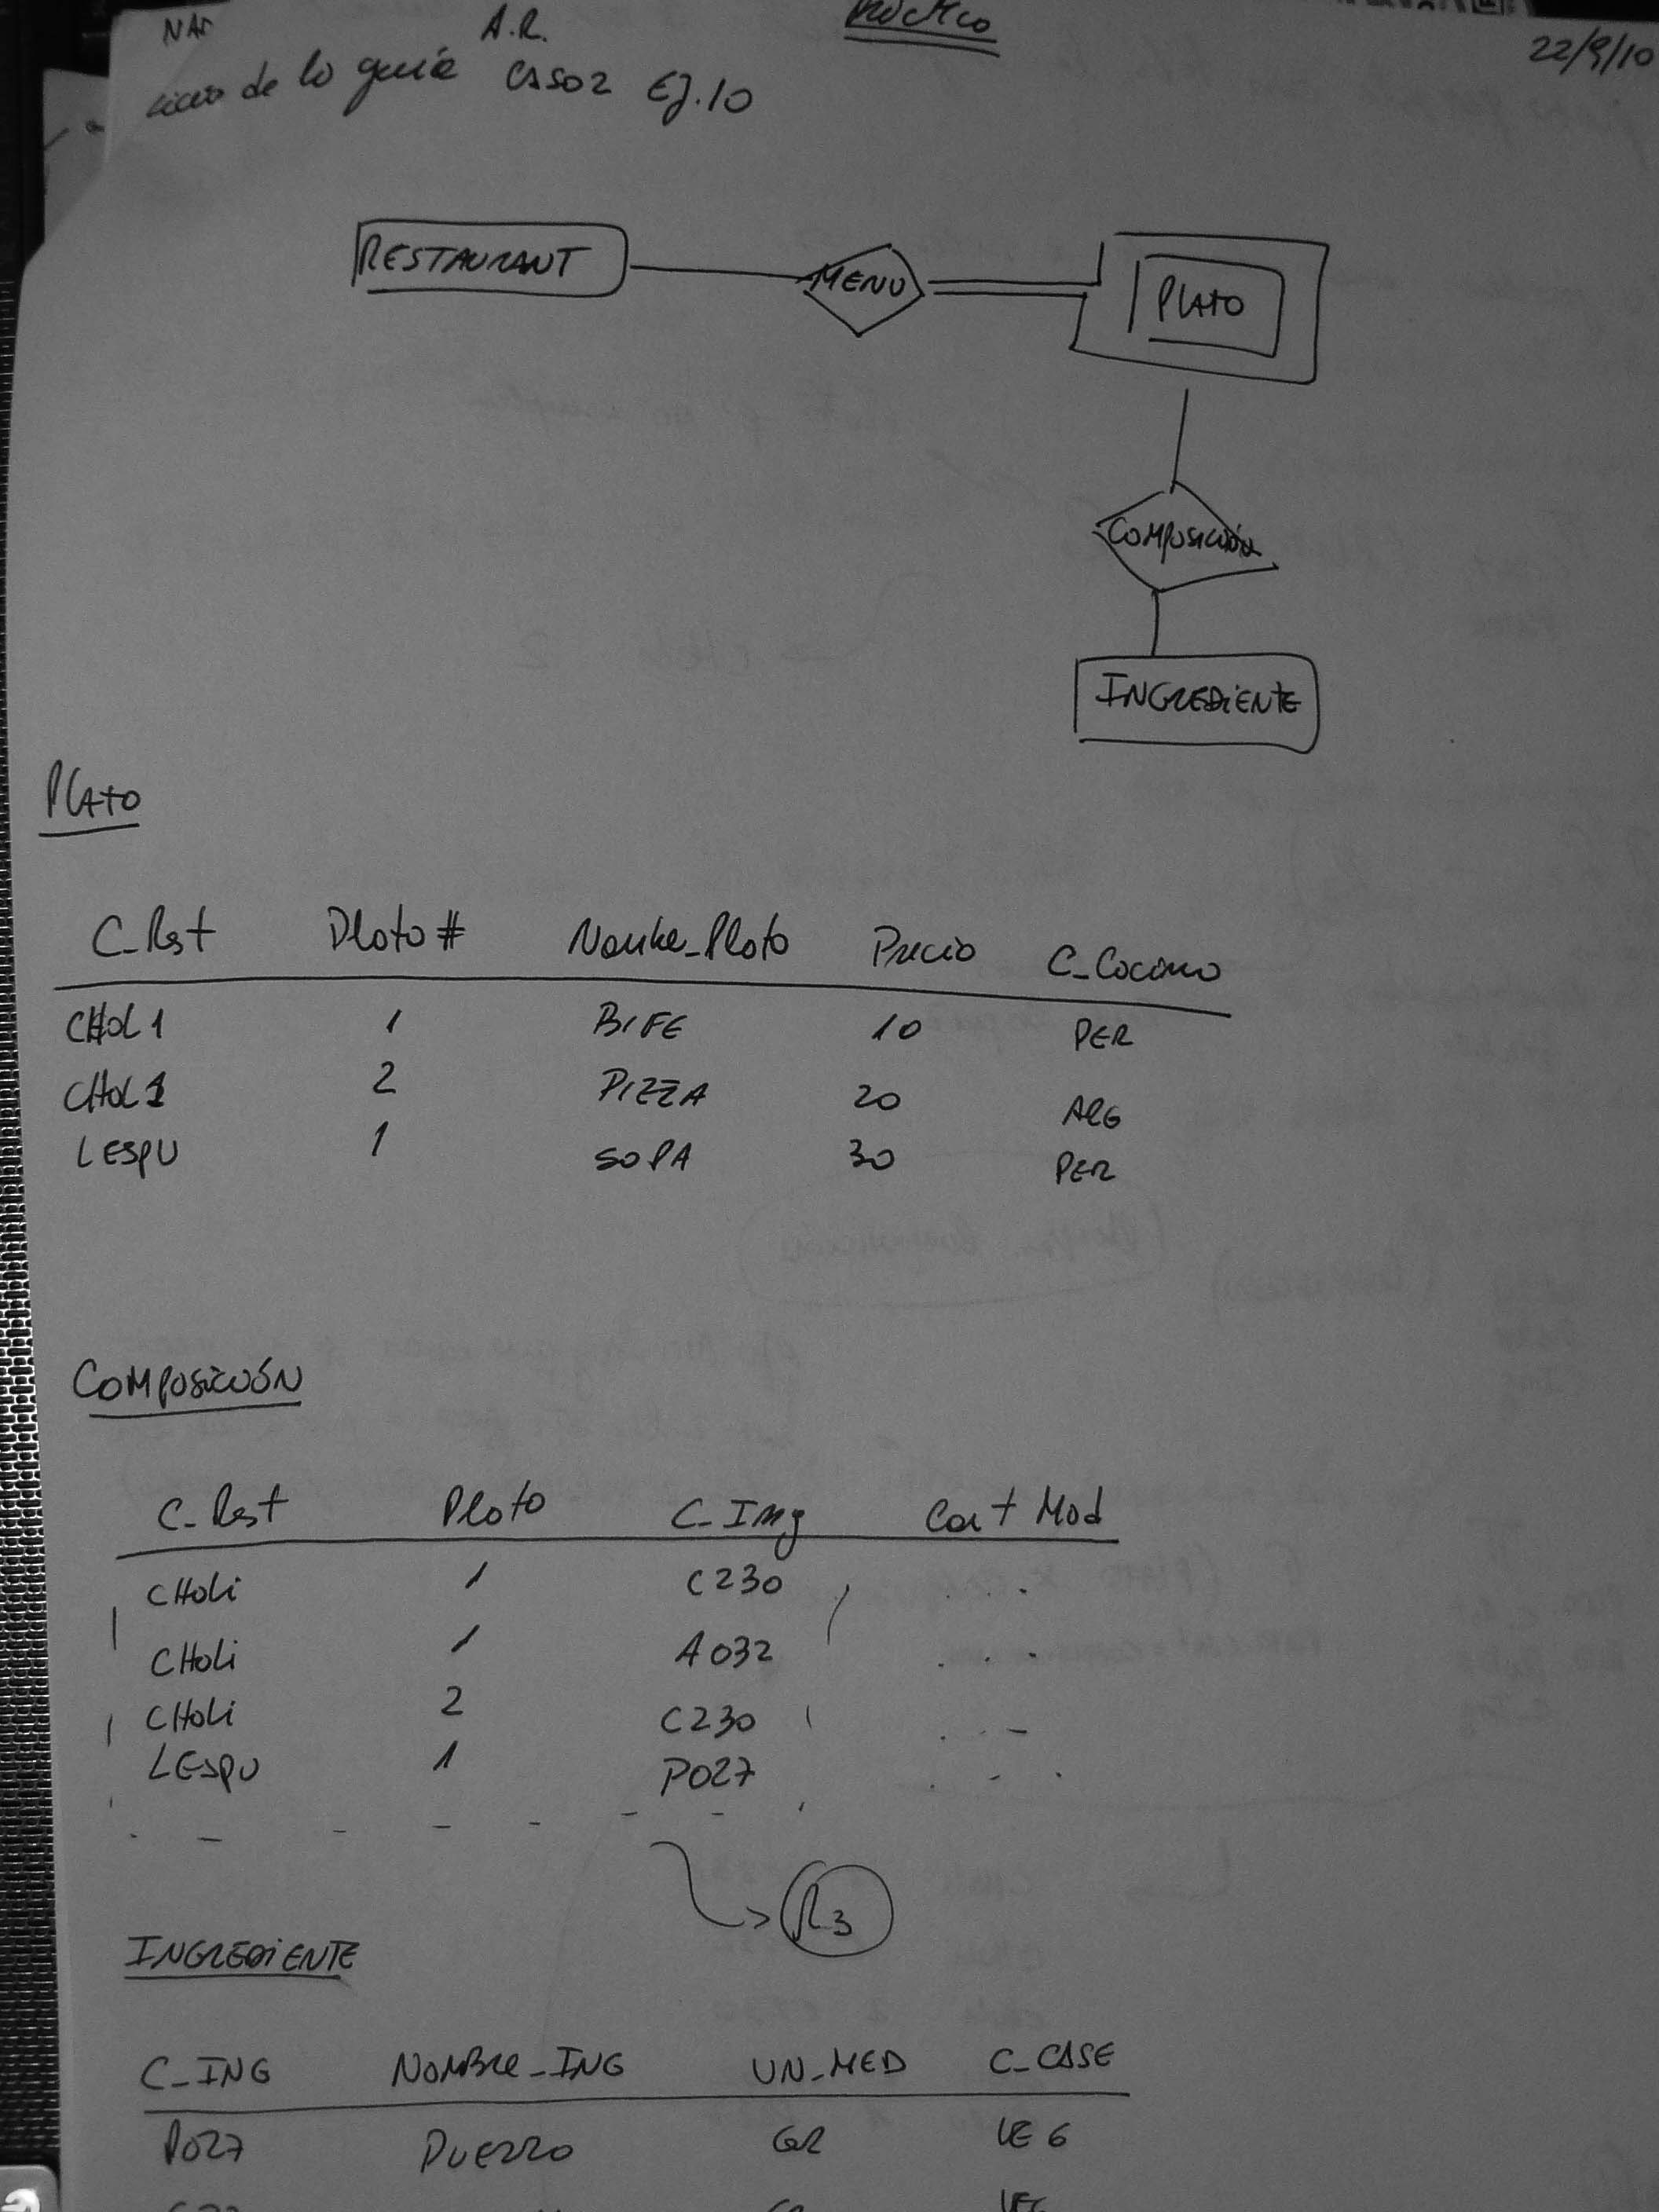 A.R.
22/9/10
de lo guía CASO 2 EJ.10
RESTAURANT MENU PLATO
COMPOSICIÓN
INGREDIENTE
PLATO
C_Rest Plato # Nombre_Plato Precio C_Cocina
CHOL1 1 BIFE 10 PER
CHOL1 2 PIZZA 20 ARG
LESPU 1 SOPA 30 PER
COMPOSICIÓN
C_Rest Plato C_Ing Cant Mod
CHOLi 1 C230
CHOLi 1 A032
CHOLi 2 C230
LESPU 1 P027
R3
INGREDIENTE
C_ING NOMBRE_ING UN_MED C_CASE
P027 PUERRO GR LEG
LEG